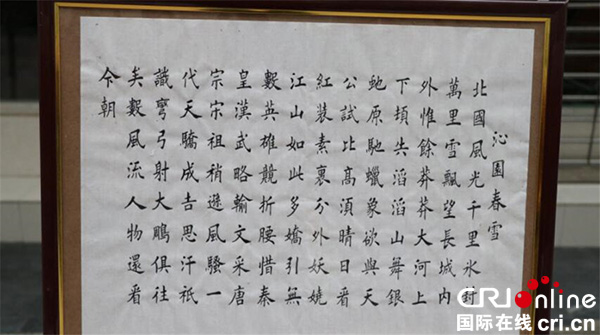 沁園春雪
北國風光千里氷封
萬里雪飄望長城内
外惟餘莽莽大河上
下頓失滔滔山舞銀
虵原馳蠟象欲與天
公試比髙須晴日看
紅裝素裹分外妖嬈
江山如此多嬌引無
數英雄競折腰惜秦
皇漢武略輸文采唐
宗宋祖稍遜風騷一
代天驕成吉思汗祇
識彎弓射大鵰俱往
矣數風流人物還看
今朝
CRI online
国际在线 cri.cn